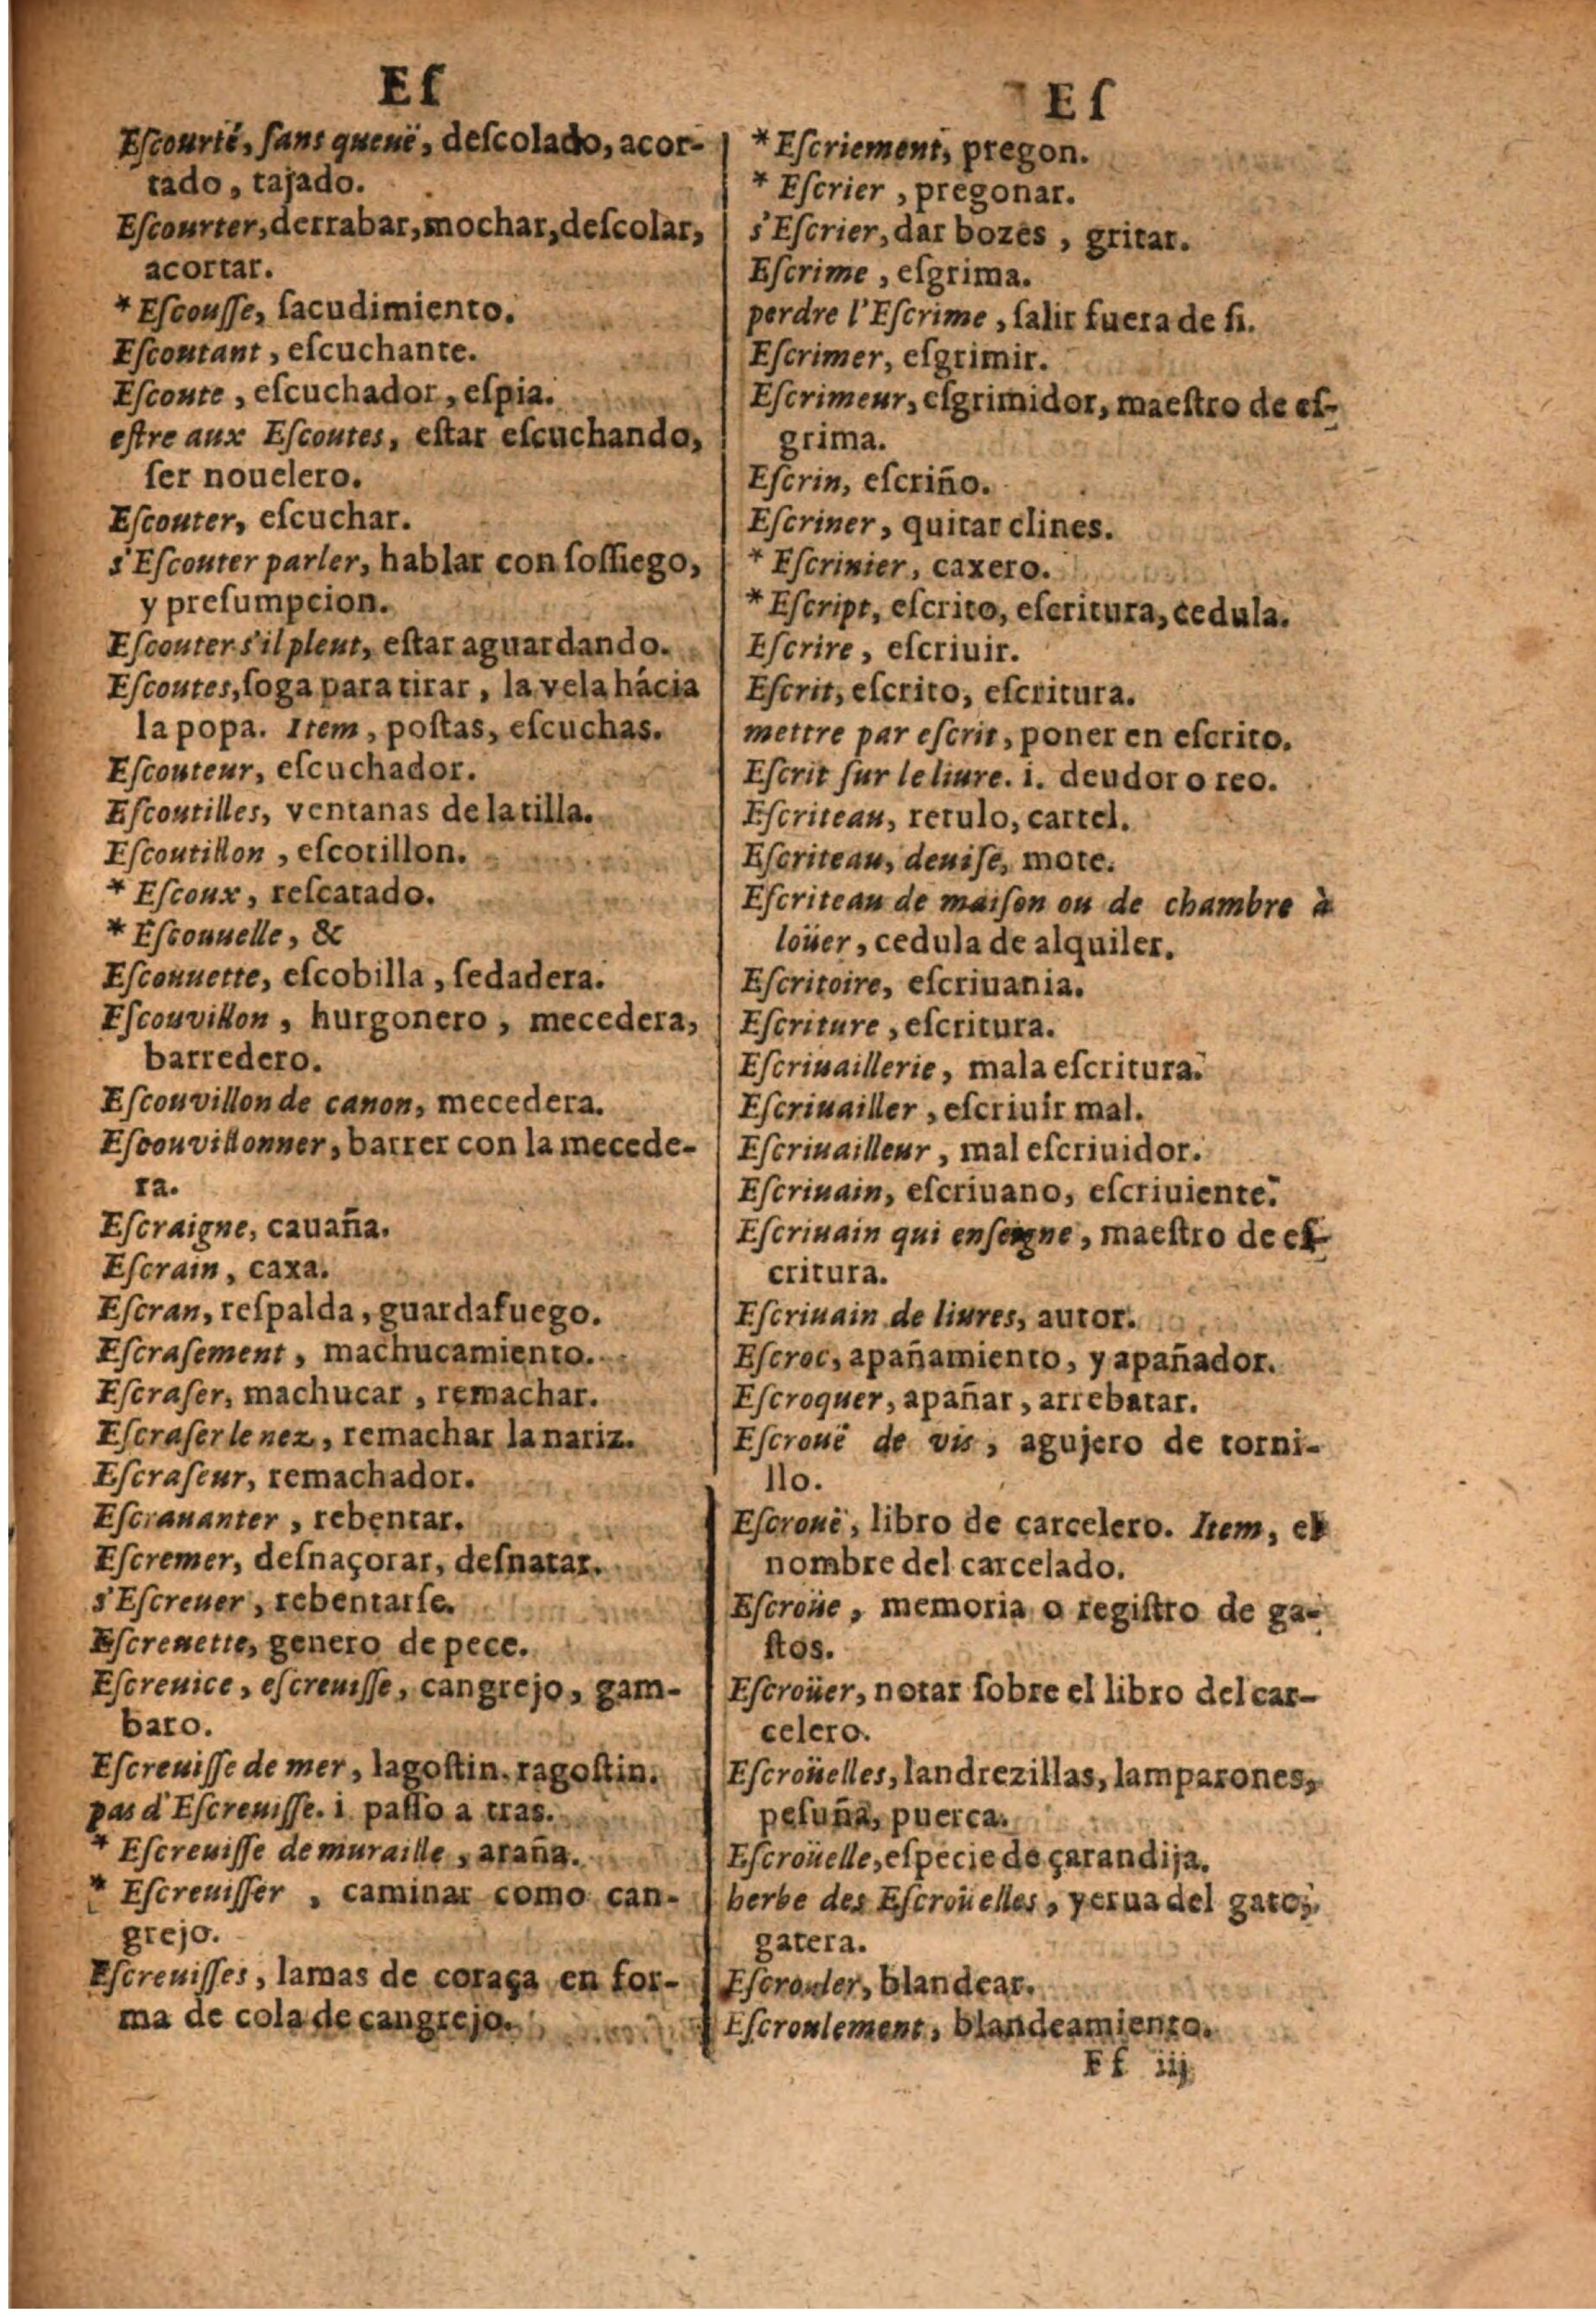 Eſ
Eſcourté, ſans queuë, deſcolado, acor-
tado, tajado.
Eſcourter, derrabar, mochar, deſcolar,
acortar.
* Eſcouſſe, ſacudimiento.
Eſcoutant, eſcuchante.
Eſcoute, eſcuchador, eſpia.
eſtre aux Eſcoutes, eſtar eſcuchando,
ſer nouelero.
Eſcouter, eſcuchar.
s'Eſcouter parler, hablar con ſoſſiego,
y preſumpcion.
Eſcouter s'il pleut, eſtar aguardando.
Eſcoutes, ſoga para tirar, la vela hácia
la popa. Item, poſtas, eſcuchas.
Eſcouteur, eſcuchador.
Eſcoutilles, ventanas de la tilla.
Eſcoutillon, eſcotillon.
* Eſcoux, reſcatado.
* Eſcouuelle, &
Eſcouuette, eſcobilla, ſedadera.
Eſcouvillon, hurgonero, mecedera,
barredero.
Eſcouvillon de canon, mecedera.
Eſcouvillonner, barrer con la mecede-
ra.
Eſcraigne, cauaña.
Eſcrain, caxa.
Eſcran, reſpalda, guardafuego.
Eſcraſement, machucamiento.
Eſcraſer, machucar, remachar.
Eſcraſer le nez, remachar la nariz.
Eſcraſeur, remachador.
Eſcrauanter, rebentar.
Eſcremer, deſnaçorar, deſnatar.
s'Eſcreuer, rebentarſe.
Eſcreuette, genero de pece.
Eſcreuice, eſcreuiſſe, cangrejo, gam-
baro.
Eſcreuiſſe de mer, lagoſtin. ragoſtin.
pas d'Eſcreuiſſe. i paſſo a tras.
* Eſcreuiſſe de muraille, araña.
* Eſcreuiſſer, caminar como can-
grejo.
Eſcreuiſſes, lamas de coraça en for-
ma de cola de cangrejo.
Eſ
* Eſcriement, pregon.
* Eſcrier, pregonar.
s'Eſcrier, dar bozes, gritar.
Eſcrime, eſgrima.
perdre l'Eſcrime, ſalir fuera de ſi.
Eſcrimer, eſgrimir.
Eſcrimeur, eſgrimidor, maeſtro de eſ-
grima.
Eſcrin, eſcriño.
Eſcriner, quitar clines.
* Eſcrinier, caxero.
* Eſcript, eſcrito, eſcritura, cedula.
Eſcrire, eſcriuir.
Eſcrit, eſcrito, eſcritura.
mettre par eſcrit, poner en eſcrito.
Eſcrit ſur le liure. i. deudor o reo.
Eſcriteau, retulo, cartel.
Eſcriteau, deuiſe, mote.
Eſcriteau de maiſon ou de chambre à
loüer, cedula de alquiler.
Eſcritoire, eſcriuania.
Eſcriture, eſcritura.
Eſcriuaillerie, mala eſcritura.
Eſcriuailler, eſcriuir mal.
Eſcriuailleur, mal eſcriuidor.
Eſcriuain, eſcriuano, eſcriuiente.
Eſcriuain qui enſeigne, maeſtro de eſ-
critura.
Eſcriuain de liures, autor.
Eſcroc, apañamiento, y apañador.
Eſcroquer, apañar, arrebatar.
Eſcrouë de vis, agujero de torni-
llo.
Eſcrouë, libro de carcelero. Item, el
nombre del carcelado.
Eſcroüe, memoria o regiſtro de ga-
ſtos.
Eſcroüer, notar ſobre el libro del car-
celero.
Eſcroüelles, landrezillas, lamparones,
peſuña, puerca.
Eſcroüelle, eſpecie de çarandija.
herbe des Eſcroüelles, yerua del gato,
gatera.
Eſcrouler, blandear.
Eſcroulement, blandeamiento.
Ff iij